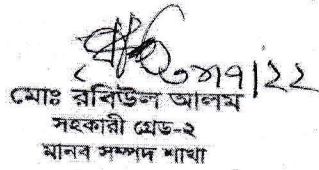 মোঃ রবিউল আলম
সহকারী গ্রেড-২
মানব সম্পদ শাখা